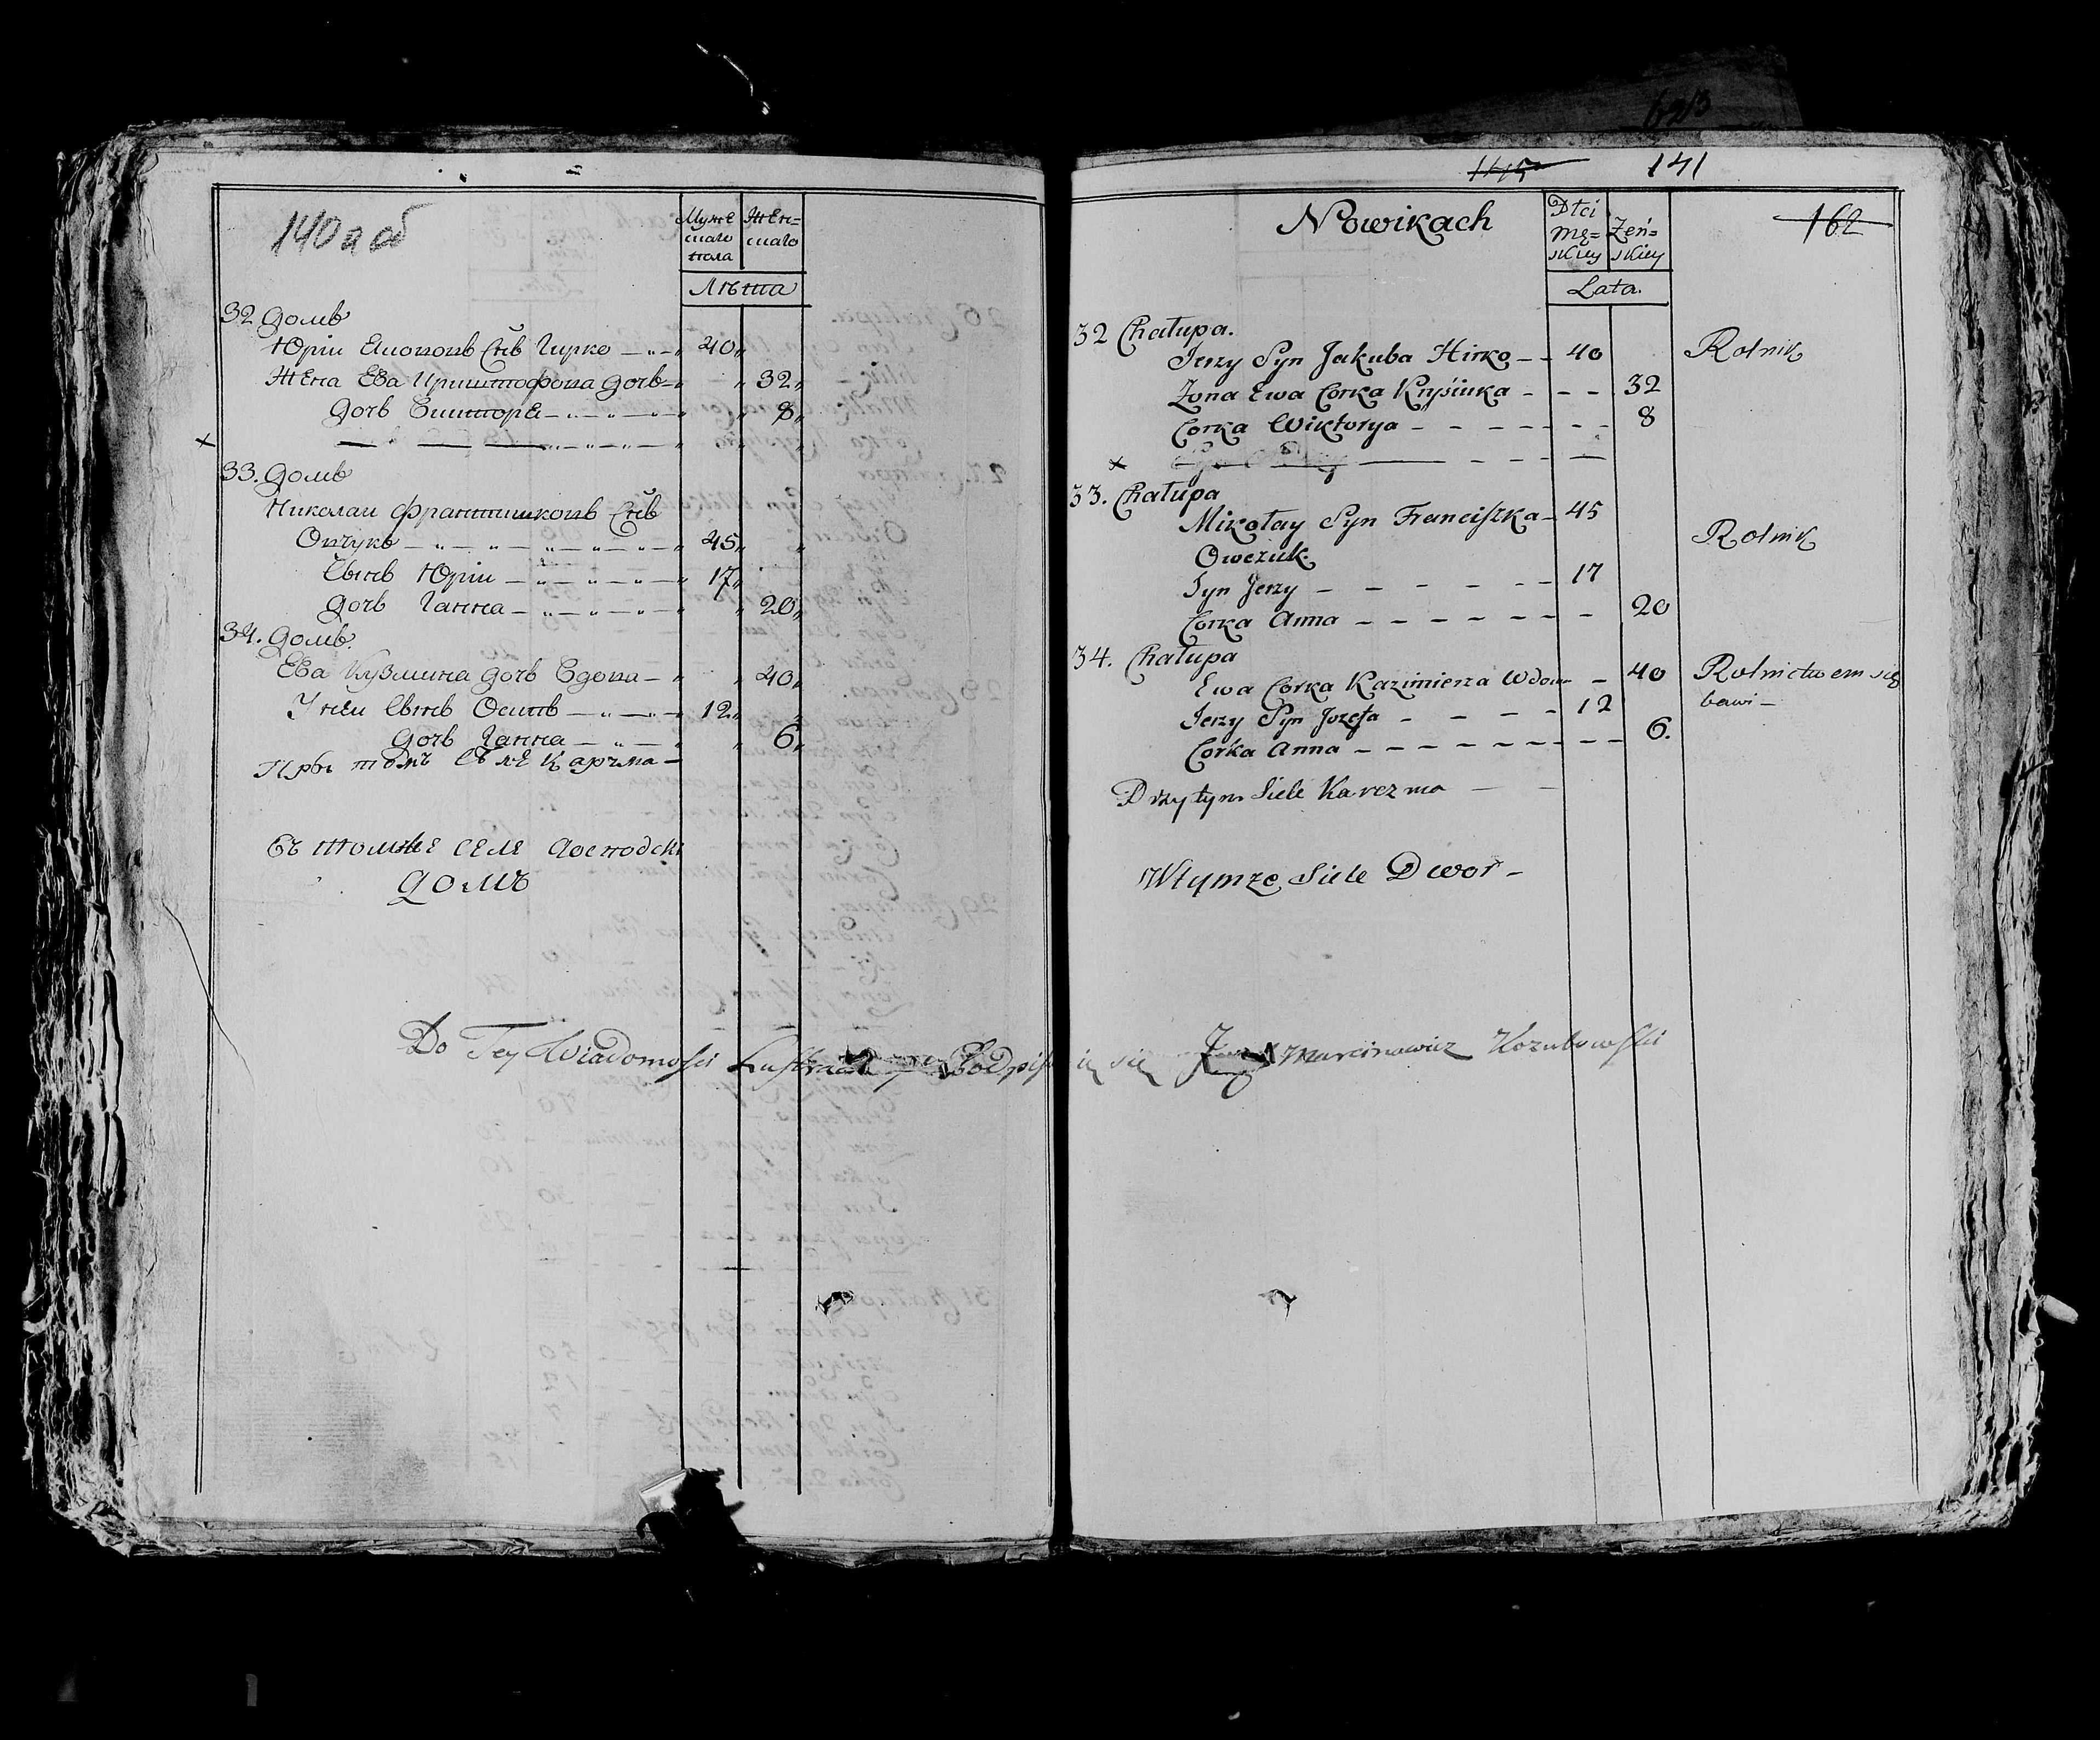 140 а об
Муже
скаго
пола
Жен=
скаго
Лѣта
32 домъ
Юрій Якововъ Снъ Гирко 40
Жена Ева Криштофова дочь 32
дочь Викторя 8
×
33. домъ
Николай Францишковъ Снъ
Овчукъ 45
Сынъ Юрій 17
дочь Ганна 20
34. домъ.
Ева Кузмина дочь Вдова 40
У ней Сынъ Осипъ 12
дочь Ганна 6
При томъ Селе Карчма
Въ томже селе Господскі
домъ
Do Tey Wiadomości Podpisuię się Marcinowicz Kozubowski
145 141
Nowikach
Płci
Mę=
skiey
Żeń=
skiey
162
Lata.
32 Chałupa.
Jerzy Syn Jakuba Hirko 40 Rolnik
Żona Ewa Corka 32
Corka Wiktorya 8
× Syn
33. Chałupa
Mikołay Syn Franciszka 45
Owczuk. Rolnik
Syn Jerzy 17
Corka Anna 20
34. Chałupa
Ewa Corka Kazimierza Wdow 40 Rolnictwem się
Jerzy Syn Jozefa 12 bawi
Corka Anna 6.
Przy tym Siele Karczma
W tymże Siele Dwor